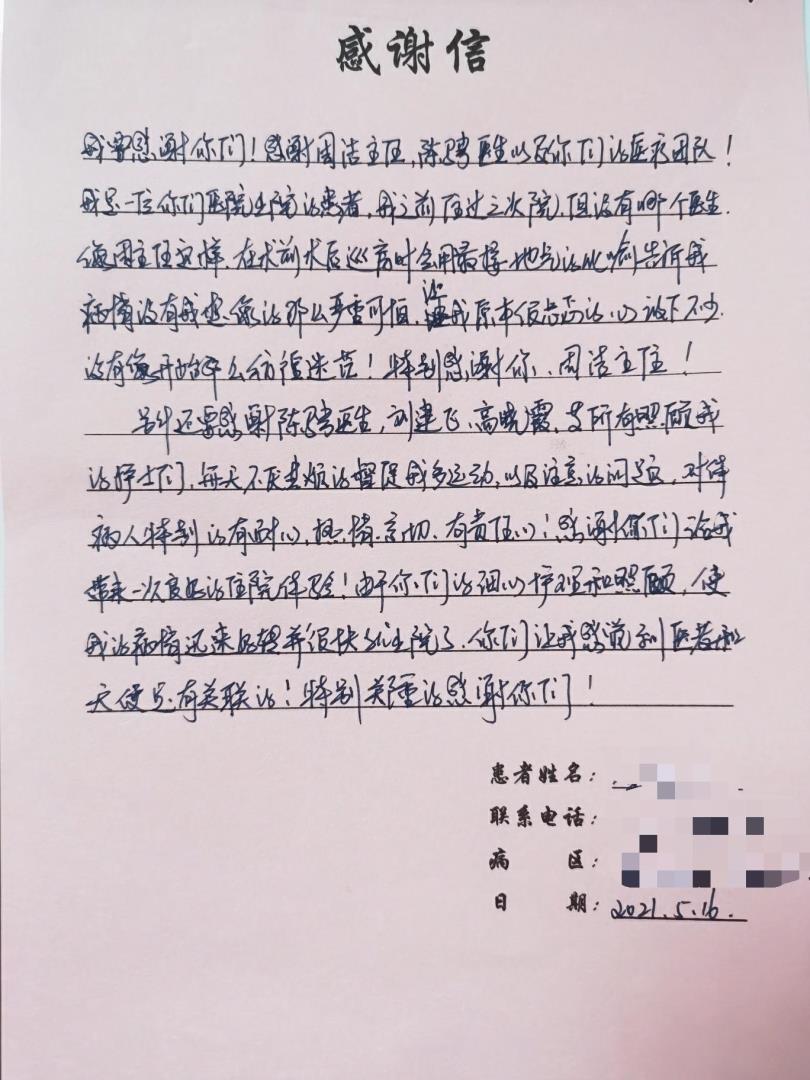 感谢信
我要感谢你们！感谢周洁主任,陈骋医生以及你们的医疗团队！
我是一位你们医院住院的患者,我之前住过三次院,但没有哪个医生.
像周主任这样.在术前术后巡房时会用最接地气的比喻告诉我
病情没有我想像的那么严重可怕.让我原本很忐忑的心放下不少.
没有像开始那么彷徨迷茫！特别感谢你、周洁主任！
另外还要感谢陈骋医生,刘建飞、高晓霞,及所有照顾我
的护士们,每天不厌其烦的督促我多运动,以及注意的问题,对待
病人特别的有耐心,热情.亲切、有责任心！感谢你们给我
带来一次良好的住院体验！由于你们的细心护理和照顾,使
我的病情迅速好转并很快就出院了.你们让我感觉到医者和
天使是有关联的！特别郑重的感谢你们！
患者姓名：
联系电话：
病 区：
日 期：2021.5.16.